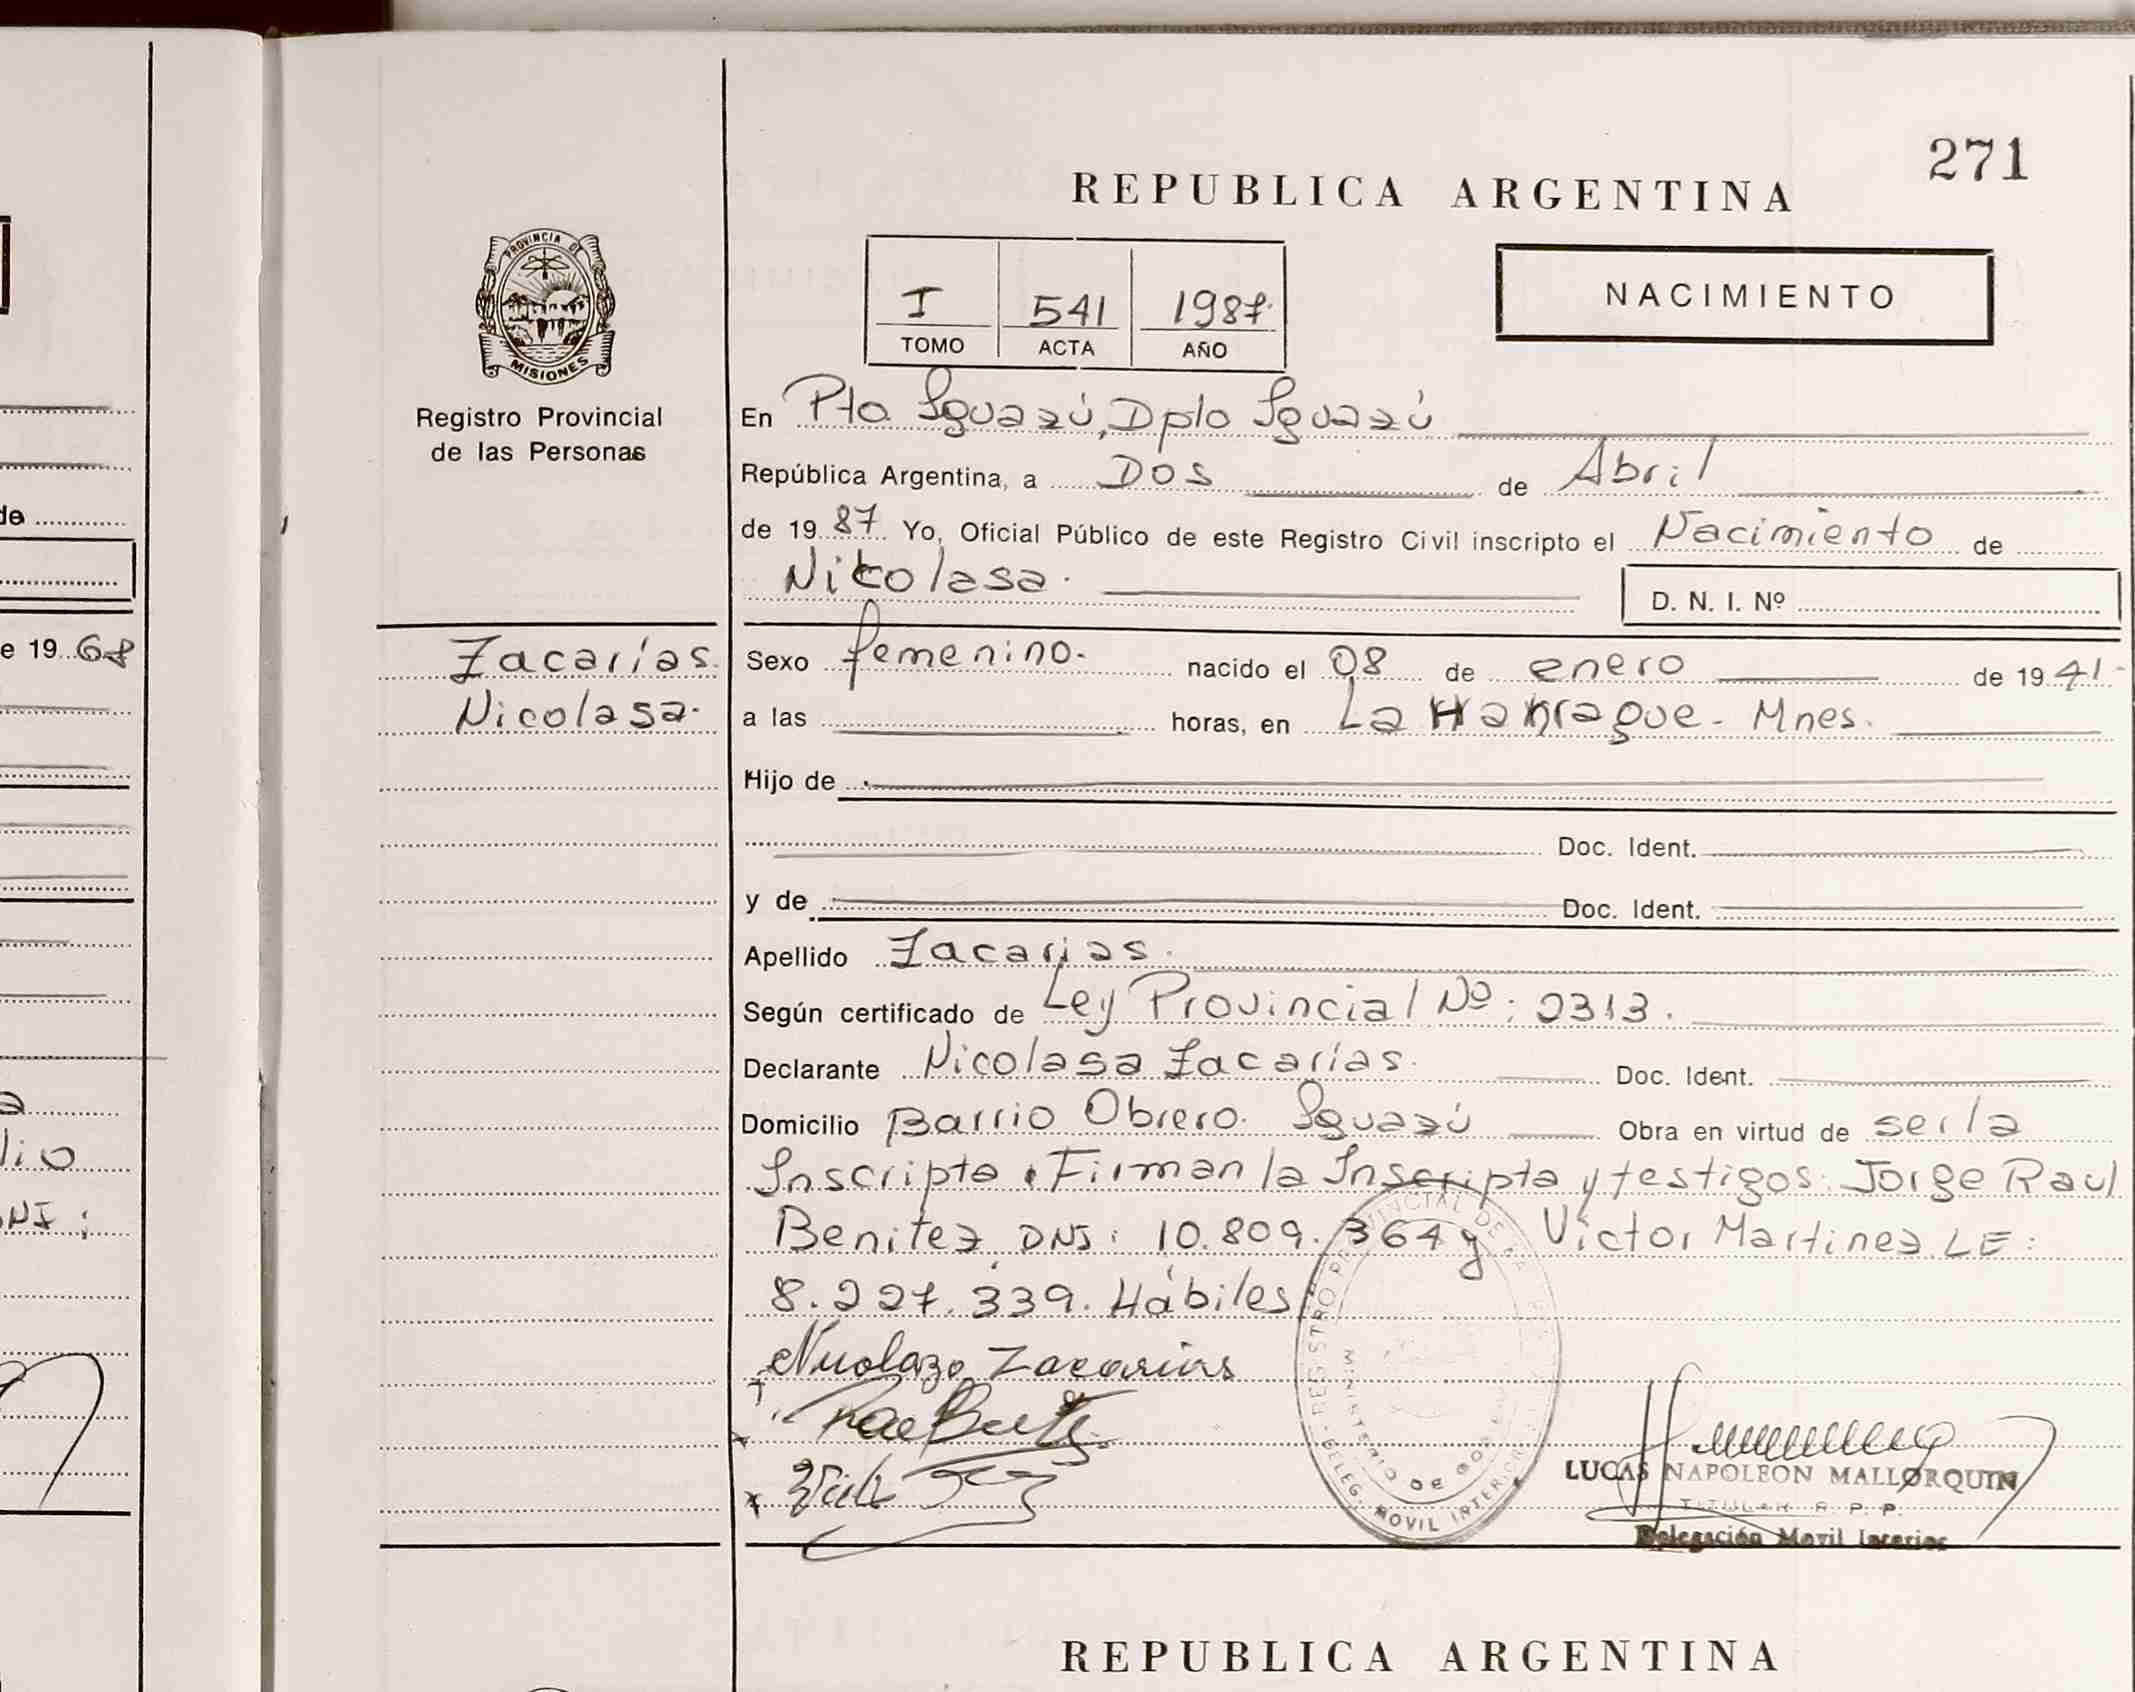 271
REPUBLICA ARGENTINA
PROVINCIA DE
MISIONES
Registro Provincial
de las Personas
I 541 1987.
TOMO ACTA AÑO
NACIMIENTO
En Pto. Iguazú, Dpto Iguazú
República Argentina, a DOS de Abril
de 1987. Yo, Oficial Público de este Registro Civil inscripto el Nacimiento de
Nicolasa.
D. N. I. Nº
Zacarías.
Nicolasa.
Sexo femenino. nacido el 08 de enero de 1941-
a las horas, en La - Mnes.
Hijo de
Doc. Ident.
y de Doc. Ident.
Apellido Zacarias.
Según certificado de Ley Provincial Nº: 2313.
Declarante Nicolasa Zacarías. Doc. Ident.
Domicilio Barrio Obrero. Iguazú Obra en virtud de ser la
Inscripta. Firman la Inscripta y testigos: Jorge Raul
Benitez DNI: 10.809.364 y Victor Martinez LE:
8.227.339. Hábiles
Zacarias
REGISTRO PROVINCIAL DE
DELEG. MOVIL INTERIOR
LUCAS NAPOLEON MALLORQUIN
TITULAR R. P. P.
Delegación Movil Interior
REPUBLICA ARGENTINA
de
e 1968
lio
DNI: